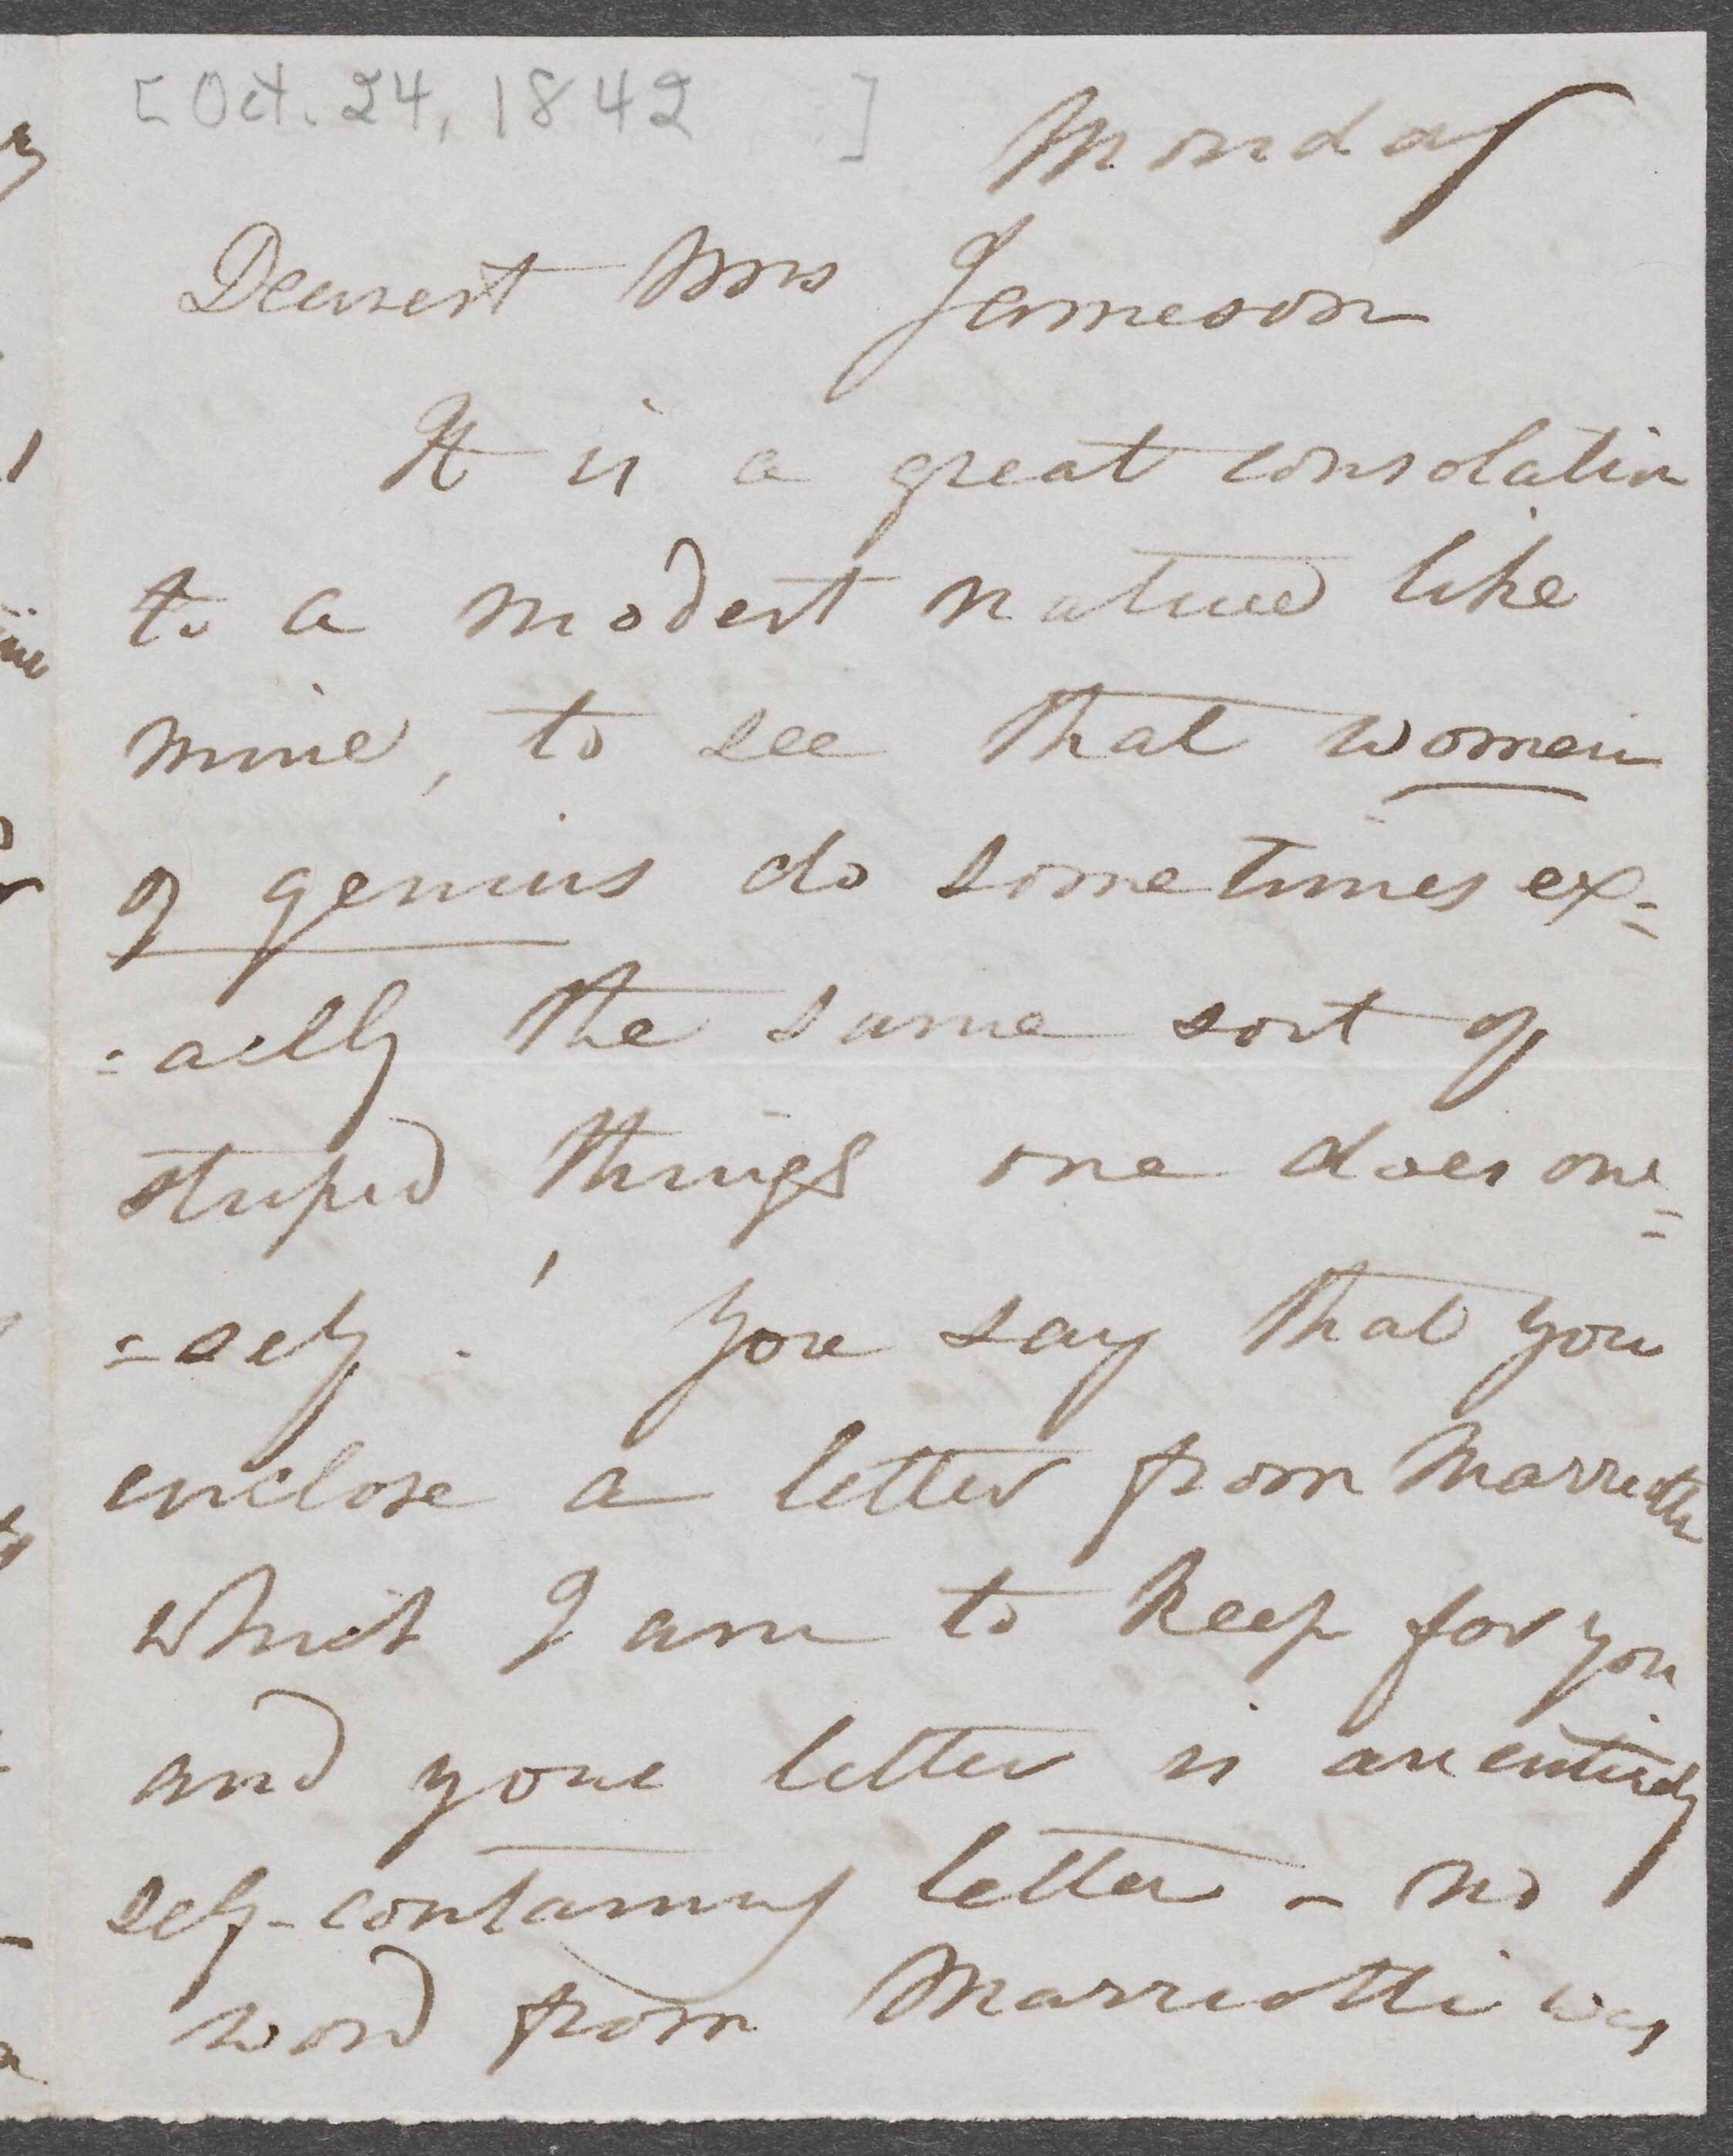 [Oct. 24, 1842 ]
Monday
Dearest Mrs Jameson
It is a great consolation
to a modest nature like
mine, to see that women
of genius do sometimes ex=
=actly the same sort of
stupid things one does one=
=self. ! You say that you
enclose a letter from Marriotti
which I am to keep for you
and your letter is an entirely
self-containing letter - no
word from Marriotti was